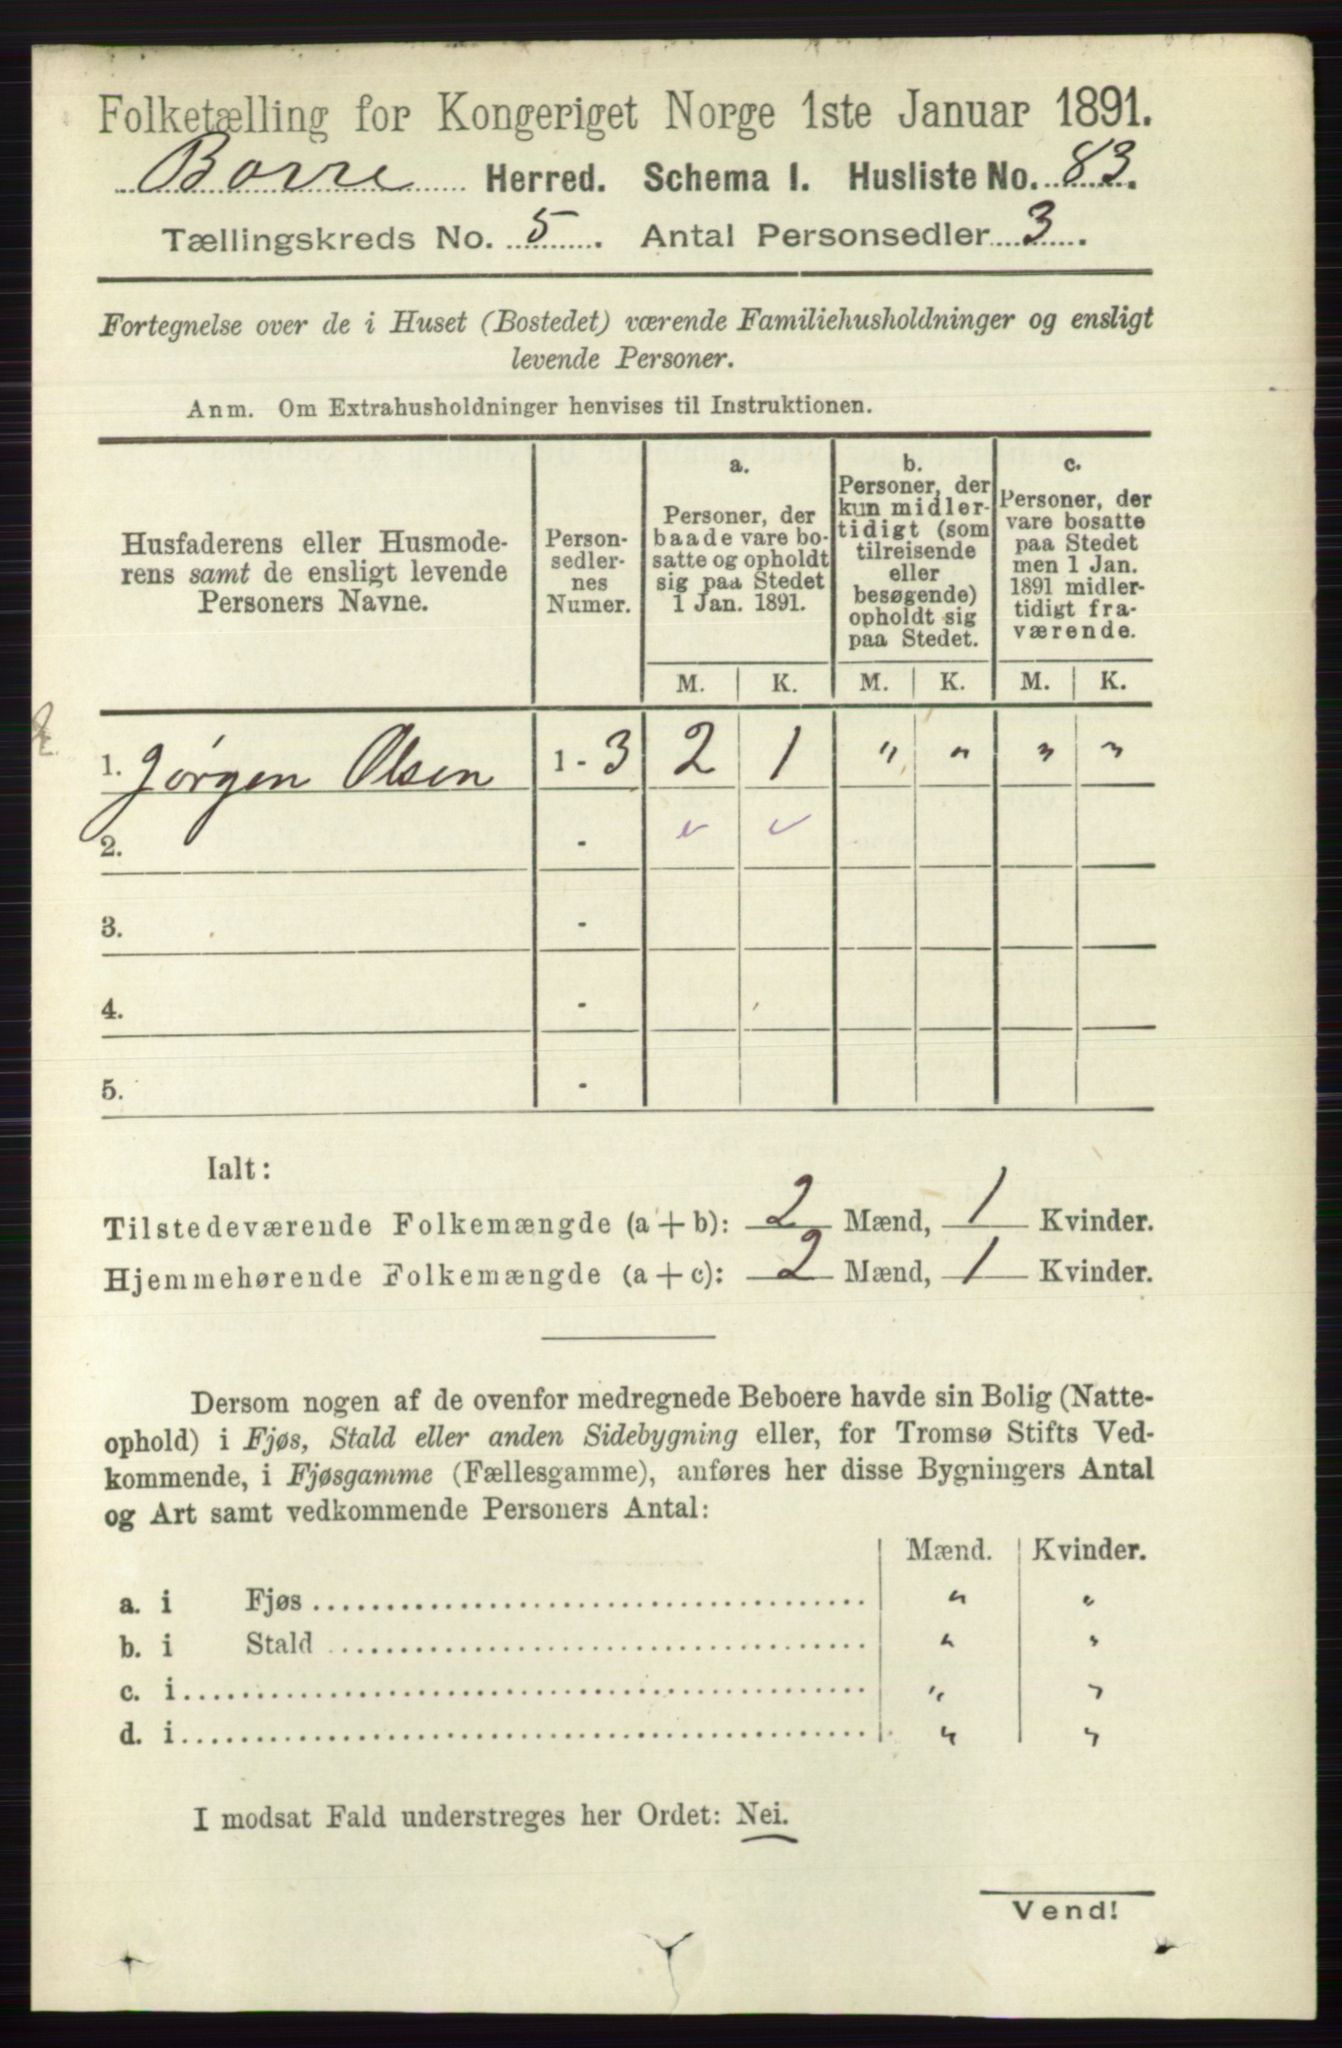 Folketælling for Kongeriget Norge 1ste Januar 1891.
Borre Herred. Schema I. Husliste No. 83.
Tællingskreds No. 5. Antal Personsedler 3.
Fortegnelse over de i Huset (Bostedet) værende Familiehusholdninger og ensligt
levende Personer.
Anm. Om Extrahusholdninger henvises til Instruktionen.
Husfaderens eller Husmode-
rens samt de ensligt levende
Personers Navne.
Person-
sedler-
nes
Numer.
a.
Personer, der
baade vare bo-
satte og opholdt
sig paa Stedet
1 Jan. 1891.
M. K.
b.
Personer, der
kun midler-
tidigt (som
tilreisende
eller
besøgende)
opholdt sig
paa Stedet.
M. K.
c.
Personer, der
vare bosatte
paa Stedet
men 1 Jan.
1891 midler-
tidigt fra-
værende.
M. K.
1. Jørgen Olsen 1 - 3 2 1 " " " "
2. -
3. -
4. -
5. -
Ialt:
Tilstedeværende Folkemængde (a + b): 2 Mænd, 1 Kvinder.
Hjemmehørende Folkemængde (a + c): 2 Mænd, 1 Kvinder.
Dersom nogen af de ovenfor medregnede Beboere havde sin Bolig (Natte-
ophold) i Fjøs, Stald eller anden Sidebygning eller, for Tromsø Stifts Ved-
kommende, i Fjøsgamme (Fællesgamme), anføres her disse Bygningers Antal
og Art samt vedkommende Personers Antal:
Mænd. Kvinder.
a. i Fjøs " "
b. i Stald " "
c. i " "
d. i " "
I modsat Fald understreges her Ordet: Nei.
Vend!